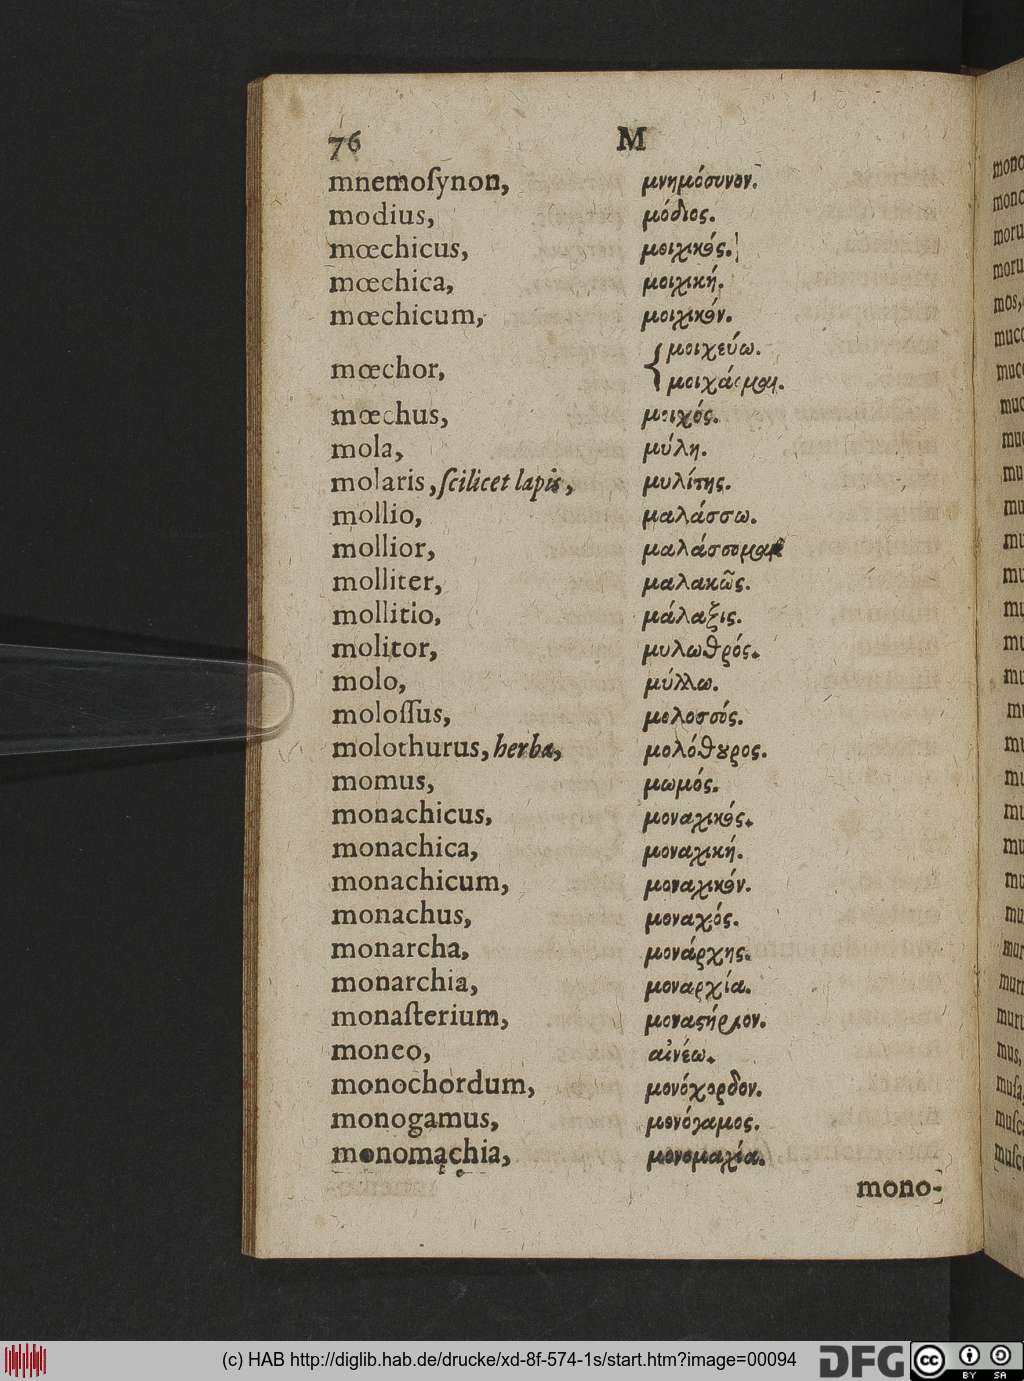 76 M
mnemoſynon, μνημόσυνον.
modius, μόδιος.
mœchicus, μοιχικός.
mœchica, μοιχική.
mœchicum, μοιχικόν.
mœchor, { μοιχεύω.
μοιχάομαι.
mœchus, μοιχός.
mola, μύλη.
molaris, ſcilicet lapis, μυλίτης.
mollio, μαλάσσω.
mollior, μαλάσσομαι
molliter, μαλακῶς.
mollitio, μάλαξις.
molitor, μυλωθρός.
molo, μύλλω.
moloſſus, μολοσσός.
molothurus, herba, μολόθουρος.
momus, μωμός.
monachicus, μοναχικός.
monachica, μοναχική.
monachicum, μοναχικόν.
monachus, μοναχός.
monarcha, μονάρχης.
monarchia, μοναρχία.
monaſterium, μοναϛήριον.
moneo, αἰνέω.
monochordum, μονόχορδον.
monogamus, μονόγαμος.
monomachia, μονομαχία.
mono-
(c) HAB http://diglib.hab.de/drucke/xd-8f-574-1s/start.htm?image=00094 DFG cc BY SA